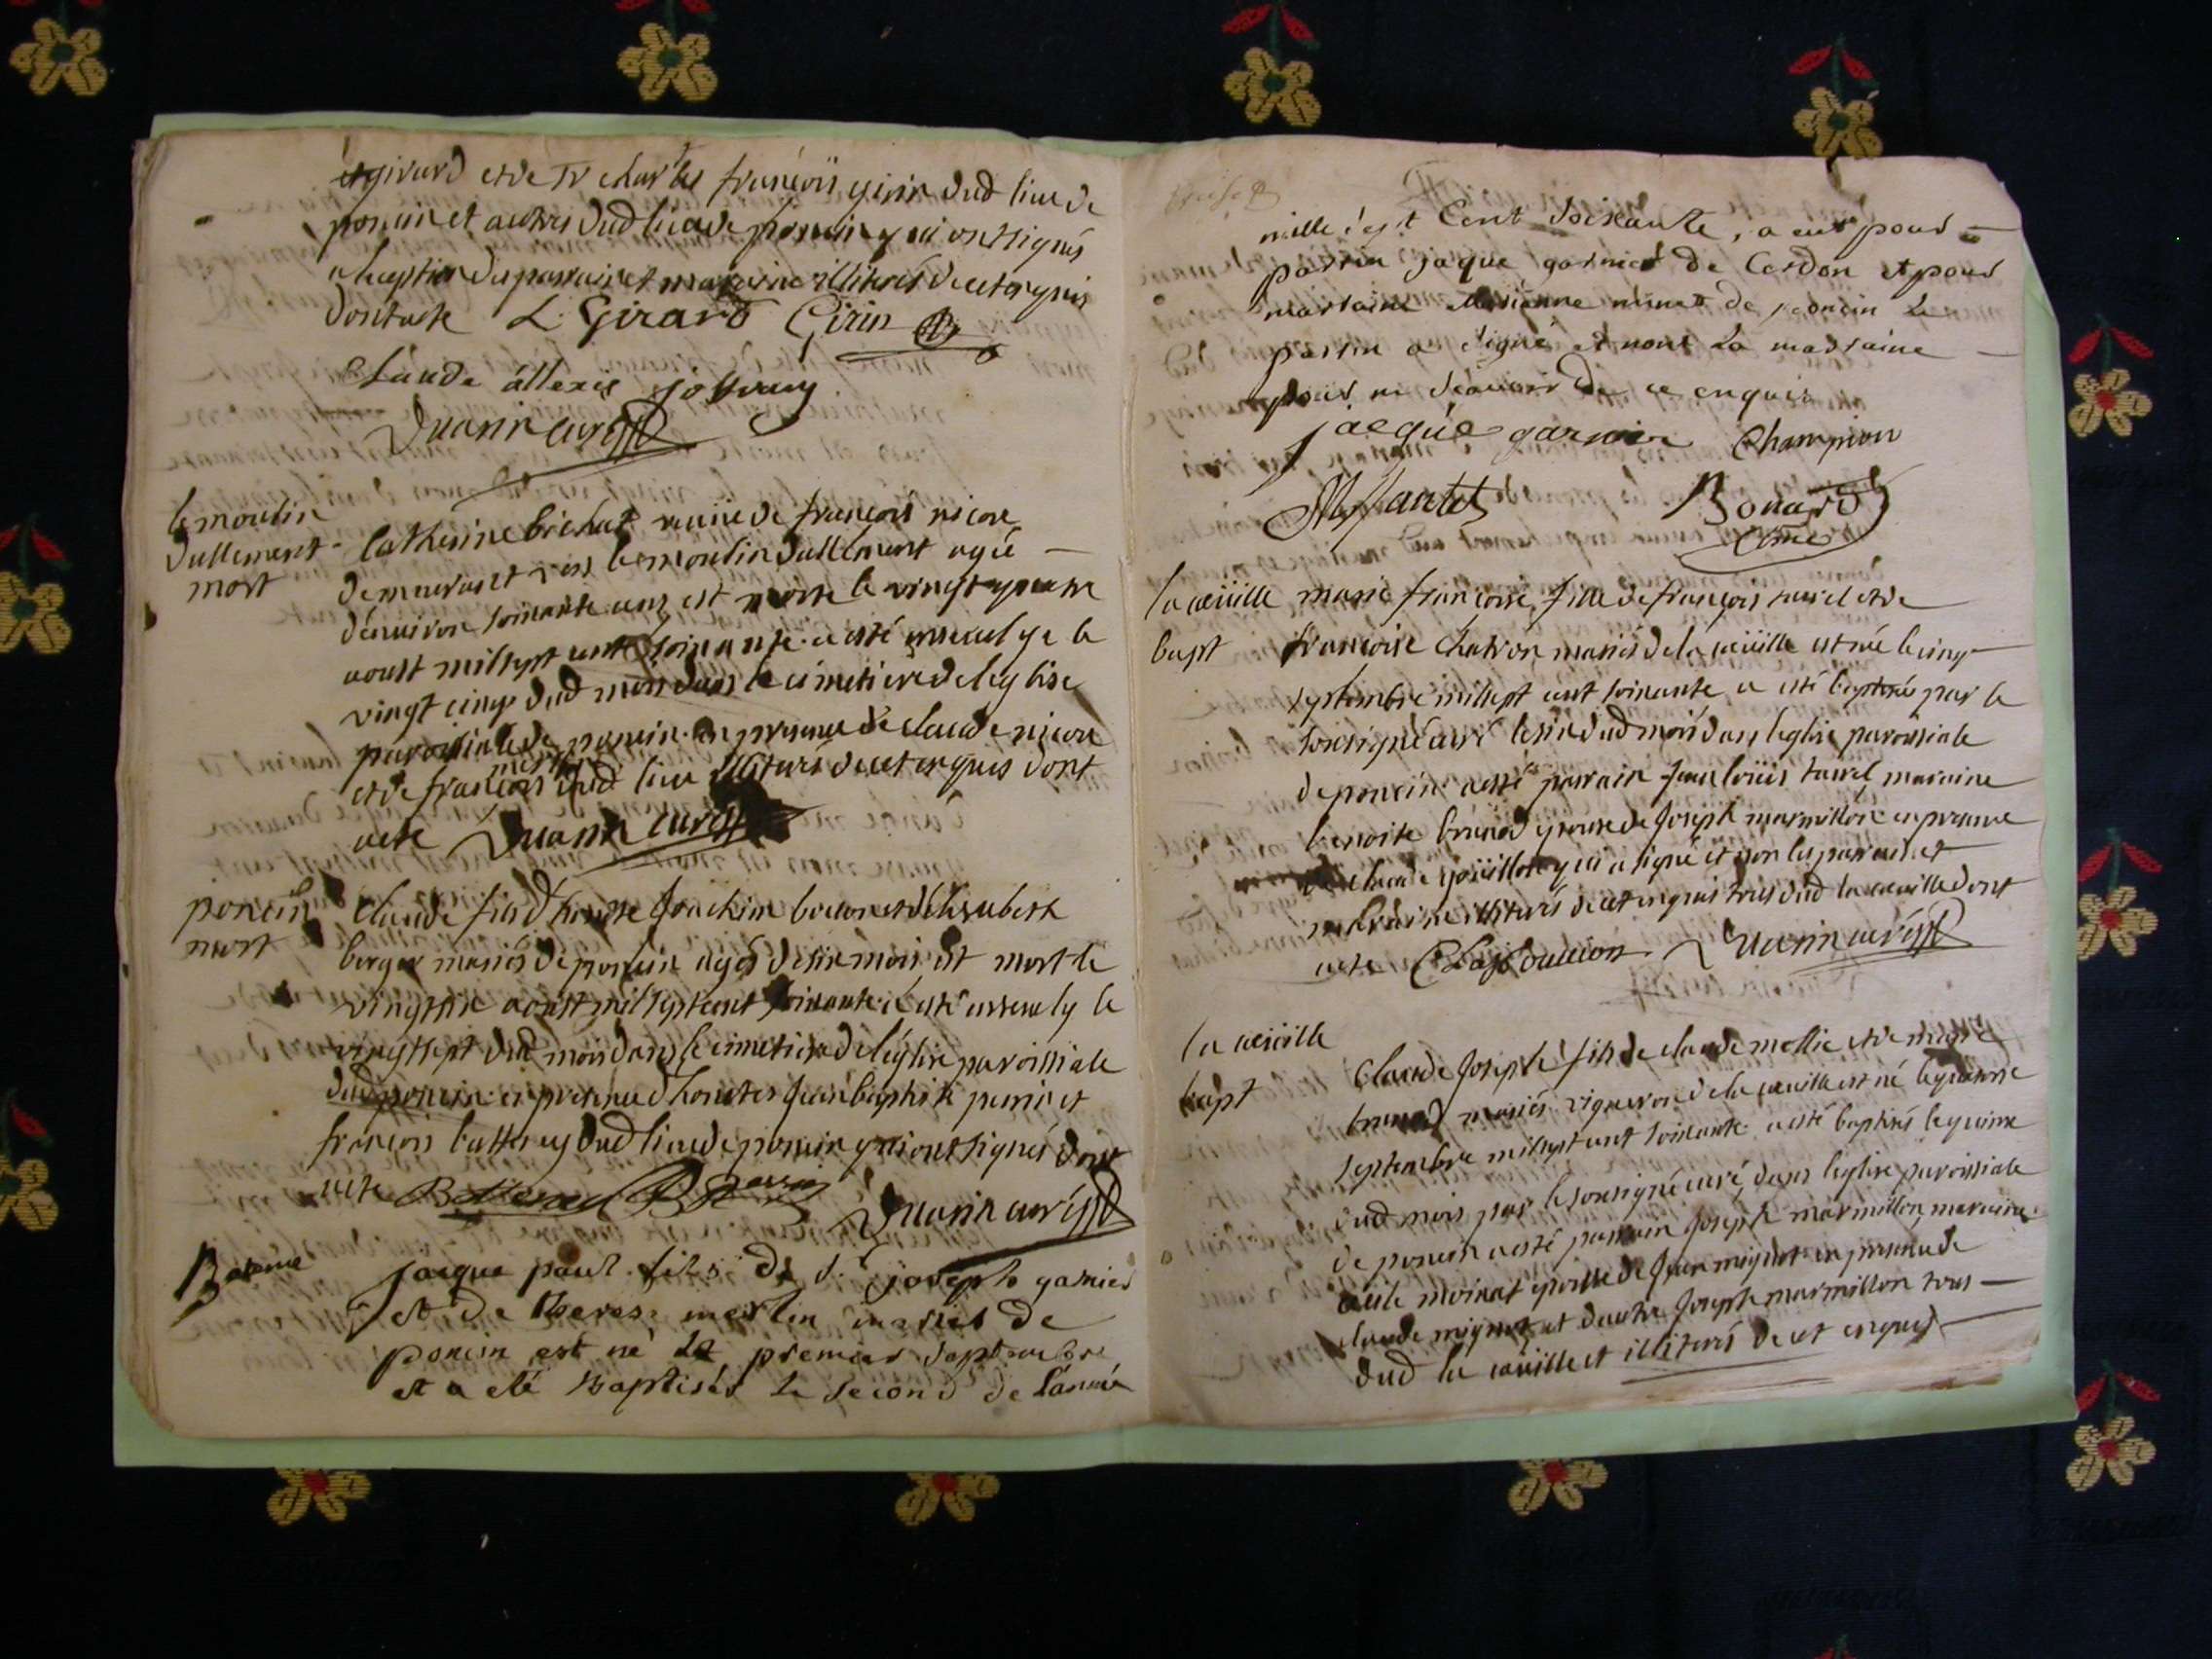 girard et de Sr charles françois girin dud lieu de
poncin et autres dud lieu de poncin qui ont signés
a lexception du parrain et maraine illiterés de cet enquis
dont acte L. Girard Girin
Claude allexis joffray
Duarin curé
le moulin
dallement
mort
Catherine bichat veuve de françois nicon
demeurant vers le moulin dallement agée
d'environ soixante ans est morte le vingt quatre
aoust mil sept cent soixante a esté ensevelye le
vingt cinq dud mois dans le cimetiere de leglise
paroissiale de poncin en presence de claude nicon
et de françois dud lieu illiterés de cet enquis dont
acte Duarin curé
poncin
mort
Claude fils d'honete Joachim bocon et d'elisabeth
berger mariés de poncin agés de six mois est mort le
vingt six aoust mil sept cent soixante a esté ensevely le
vingt sept dud mois dans le cimetiere de l'eglise paroissiale
dud poncin en presence d'honetes Jean baptiste perrin et
françois battery dud lieu de poncin qui ont signés dont
acte Duarin curé
Bateme
jacque paul fils de s. joseph garnier
et de theresse merlin mariés de
poncin est né le premier septembre
et a eté Baptisés le second de l'année
mille sept Cent soixante, a eut pour
parrin jaque garnier de Cerdon et pour
marraine Marianne de poncin Le
parrin a signé et nont La marraine
pour ne scavoir de ce enquis
jacque garnier Champion
Bonard
la cueille
bapt
marie françoise fille de françois tavel et de
françoise Chatron mariés de la cueille est née le cinq
septembre mil sept cent soixante a esté baptisée par le
soussigné curé le six dud mois dans leglise paroissiale
de poncin a esté parrain Jean louis tavel, maraine
benoite brunod epouse de Joseph marmillon en presence
de claude goüillon qui a signé et non les parrain et
maraine illiterés de cet enquis tous dud la cueille dont
acte Duarin curé
la cueille
bapt
Claude Joseph fils de claude mollie et de marie
brunod mariés vigneron de la cueille est né le quatorze
septembre mil sept cent soixante a esté baptisés le quinze
dud mois par le soussigné curé dans leglise paroissiale
de poncin a esté parrain Joseph marmillon, maraine
moinat epouse de Jean mignot en presence de
claude mignot et dautre Joseph marmillon tous
dud la cueille et illiterés de cet enquis